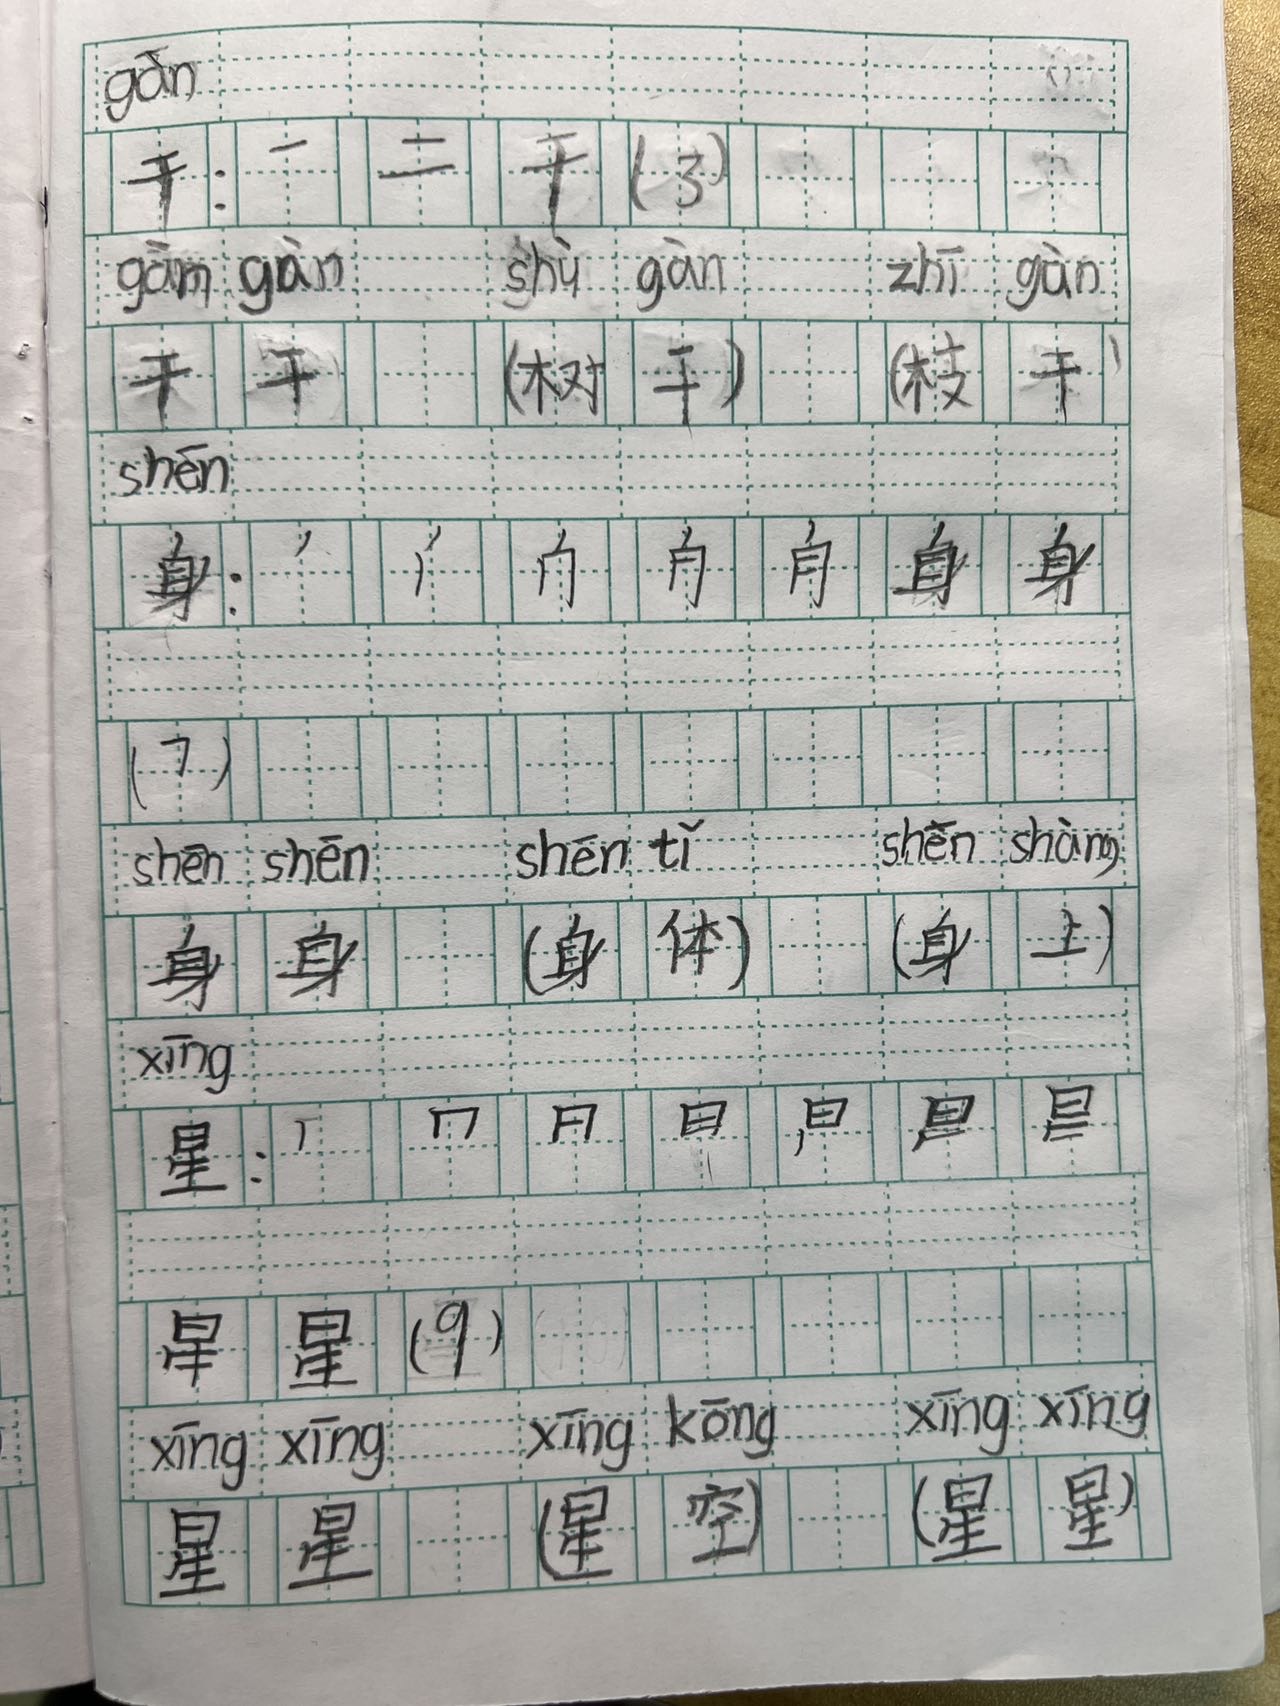 gàn
干: 一 二 干 (3)
gàn gàn shù gàn zhī gàn
干 干 (树 干) (枝 干)
shēn
身: 身 身
(7)
shēn shēn shēn tǐ shēn shàng
身 身 (身 体) (身 上)
xīng
星: 丨 冂 日 日
星 (9)
xīng xīng xīng kōng xīng xīng
星 星 (星 空) (星 星)